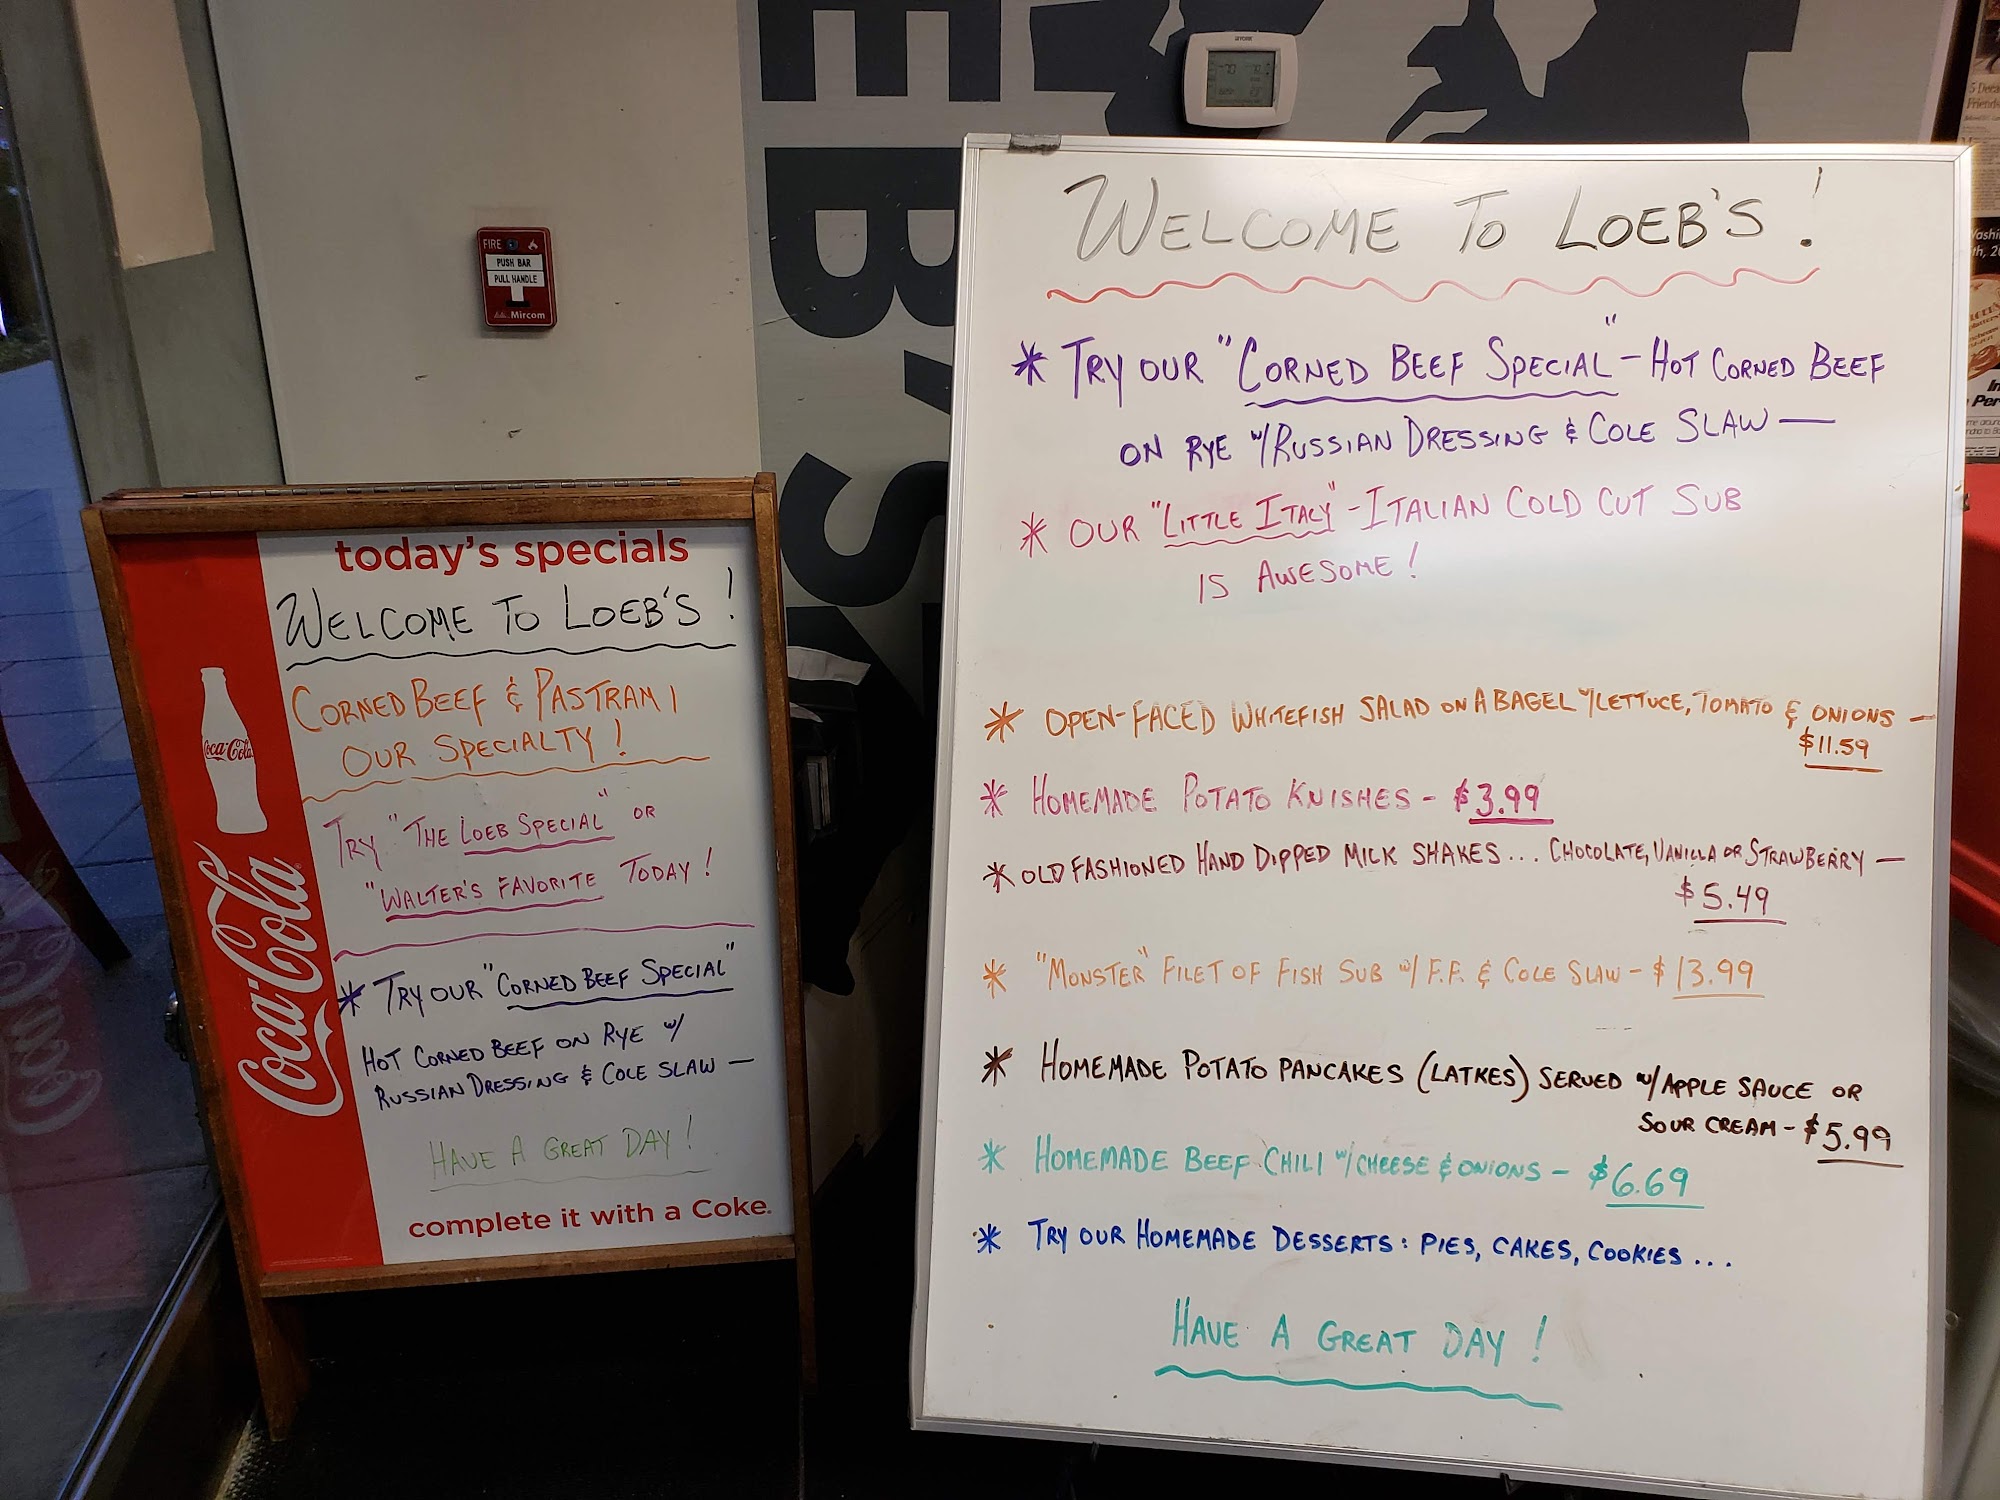 EB'S
YORK
FIRE
PUSH BAR
PULL HANDLE
Mircom
today's specials
WELCOME TO LOEB'S!
CORNED BEEF & PASTRAMI
OUR SPECIALTY!
TRY "THE LOEB SPECIAL" OR
"WALTER'S FAVORITE TODAY!
* TRY OUR "CORNED BEEF SPECIAL"
HOT CORNED BEEF ON RYE w/
RUSSIAN DRESSING & COLE SLAW —
HAVE A GREAT DAY!
complete it with a Coke.
Coca-Cola
Coca-Cola
WELCOME TO LOEB'S!
* TRY OUR "CORNED BEEF SPECIAL" - HOT CORNED BEEF
ON RYE w/RUSSIAN DRESSING & COLE SLAW —
* OUR "LITTLE ITALY" - ITALIAN COLD CUT SUB
IS AWESOME!
* OPEN-FACED WHITEFISH SALAD ON A BAGEL w/LETTUCE, TOMATO & ONIONS —
$11.59
* HOMEMADE POTATO KNISHES - $3.99
* OLD FASHIONED HAND DIPPED MILK SHAKES... CHOCOLATE, VANILLA OR STRAWBERRY —
$5.49
* "MONSTER" FILET OF FISH SUB w/ F.F. & COLE SLAW - $13.99
* HOMEMADE POTATO PANCAKES (LATKES) SERVED w/APPLE SAUCE OR
SOUR CREAM - $5.99
* HOMEMADE BEEF CHILI w/CHEESE & ONIONS - $6.69
* TRY OUR HOMEMADE DESSERTS: PIES, CAKES, COOKIES....
HAVE A GREAT DAY!